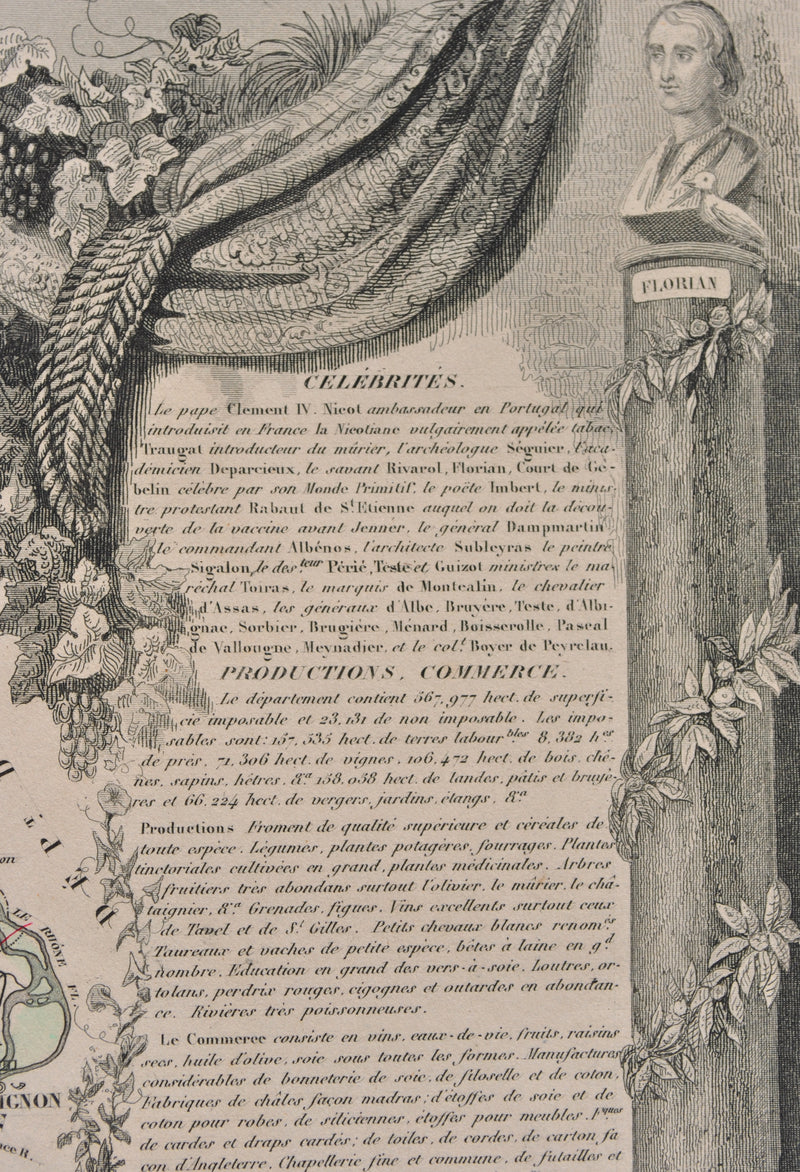 FLORIAN
CÉLÉBRITÉS.
Le pape Clement IV. Nicot ambassadeur en Portugal qui
introduisit en France la Nicotiane vulgairement appélée tabac,
Traugat introducteur du mûrier, l'archéologue Séguier, l'aca-
démicien Deparcieux, le savant Rivarol, Florian, Court de Gé-
belin célèbre par son Monde Primitif, le poëte Imbert, le minis-
tre protestant Rabaut de St Etienne auquel on doit la décou-
verte de la vaccine avant Jenner, le général Dampmartin
le commandant Albénos, l'architecte Subleyras le peintre
Sigalon, le desteur Périé, Teste et Guizot ministres le ma-
réchal Toiras, le marquis de Montcalin, le chevalier
d'Assas, les généraux d'Albe, Bruyère, Teste, d'Albi-
gnac, Sorbier, Brugière, Ménard, Boisserolle, Pascal
de Vallougne, Meynadier, et le col.l Boyer de Peyrelau.
PRODUCTIONS, COMMERCE.
Le département contient 567,977 hect. de superfi-
cie imposable et 23,131 de non imposable. Les impo-
sables sont: 157,535 hect. de terres labourbles 8,382 hes
de prés, 71,306 hect. de vignes, 106,472 hect. de bois, chê-
nes, sapins, hêtres, &a 158,058 hect. de landes, pâtis et bruyè-
res et 66,224 hect. de vergers, jardins, étangs, &a
Productions Froment de qualité supérieure et céréales de
toute espèce. Légumes, plantes potagères, fourrages. Plantes
tinctoriales cultivées en grand, plantes médicinales. Arbres
fruitiers très abondans surtout l'olivier, le mûrier, le châ-
taignier, &a Grenades, figues. Vins excellents surtout ceux
de Tavel et de St Gilles. Petits chevaux blancs renomés
Taureaux et vaches de petite espèce, bêtes à laine en gd
nombre. Education en grand des vers-à-soie. Loutres, or-
tolans, perdrix rouges, cigognes et outardes en abondan-
ce. Rivières très poissonneuses.
Le Commerce consiste en vins, eaux-de-vie, fruits, raisins
secs, huile d'olive, soie sous toutes les formes. Manufactures
considérables de bonneterie de soie, de filoselle et de coton.
Fabriques de châles façon madras; d'étoffes de soie et de
coton pour robes, de siliciennes, étoffes pour meubles. fques
de cardes et draps cardés; de toiles, de cordes, de carton fa
çon d'Angleterre. Chapellerie fine et commune, de futailles et
DÉPT D
on
LE RHÔNE FL.
IGNON
ce R.